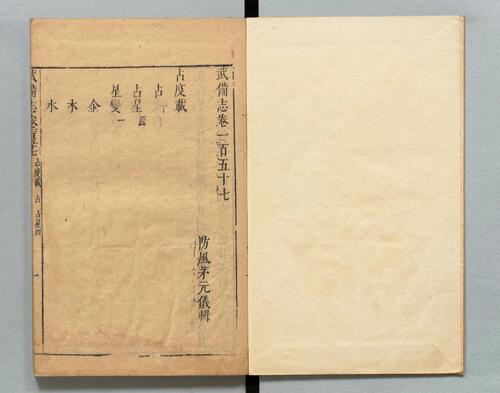 武備志卷一百五十七
防風茅元儀輯
占度載
占
占星四
星變一
金
木
水
武備志卷一百五十七 占度載 占 占星四 一